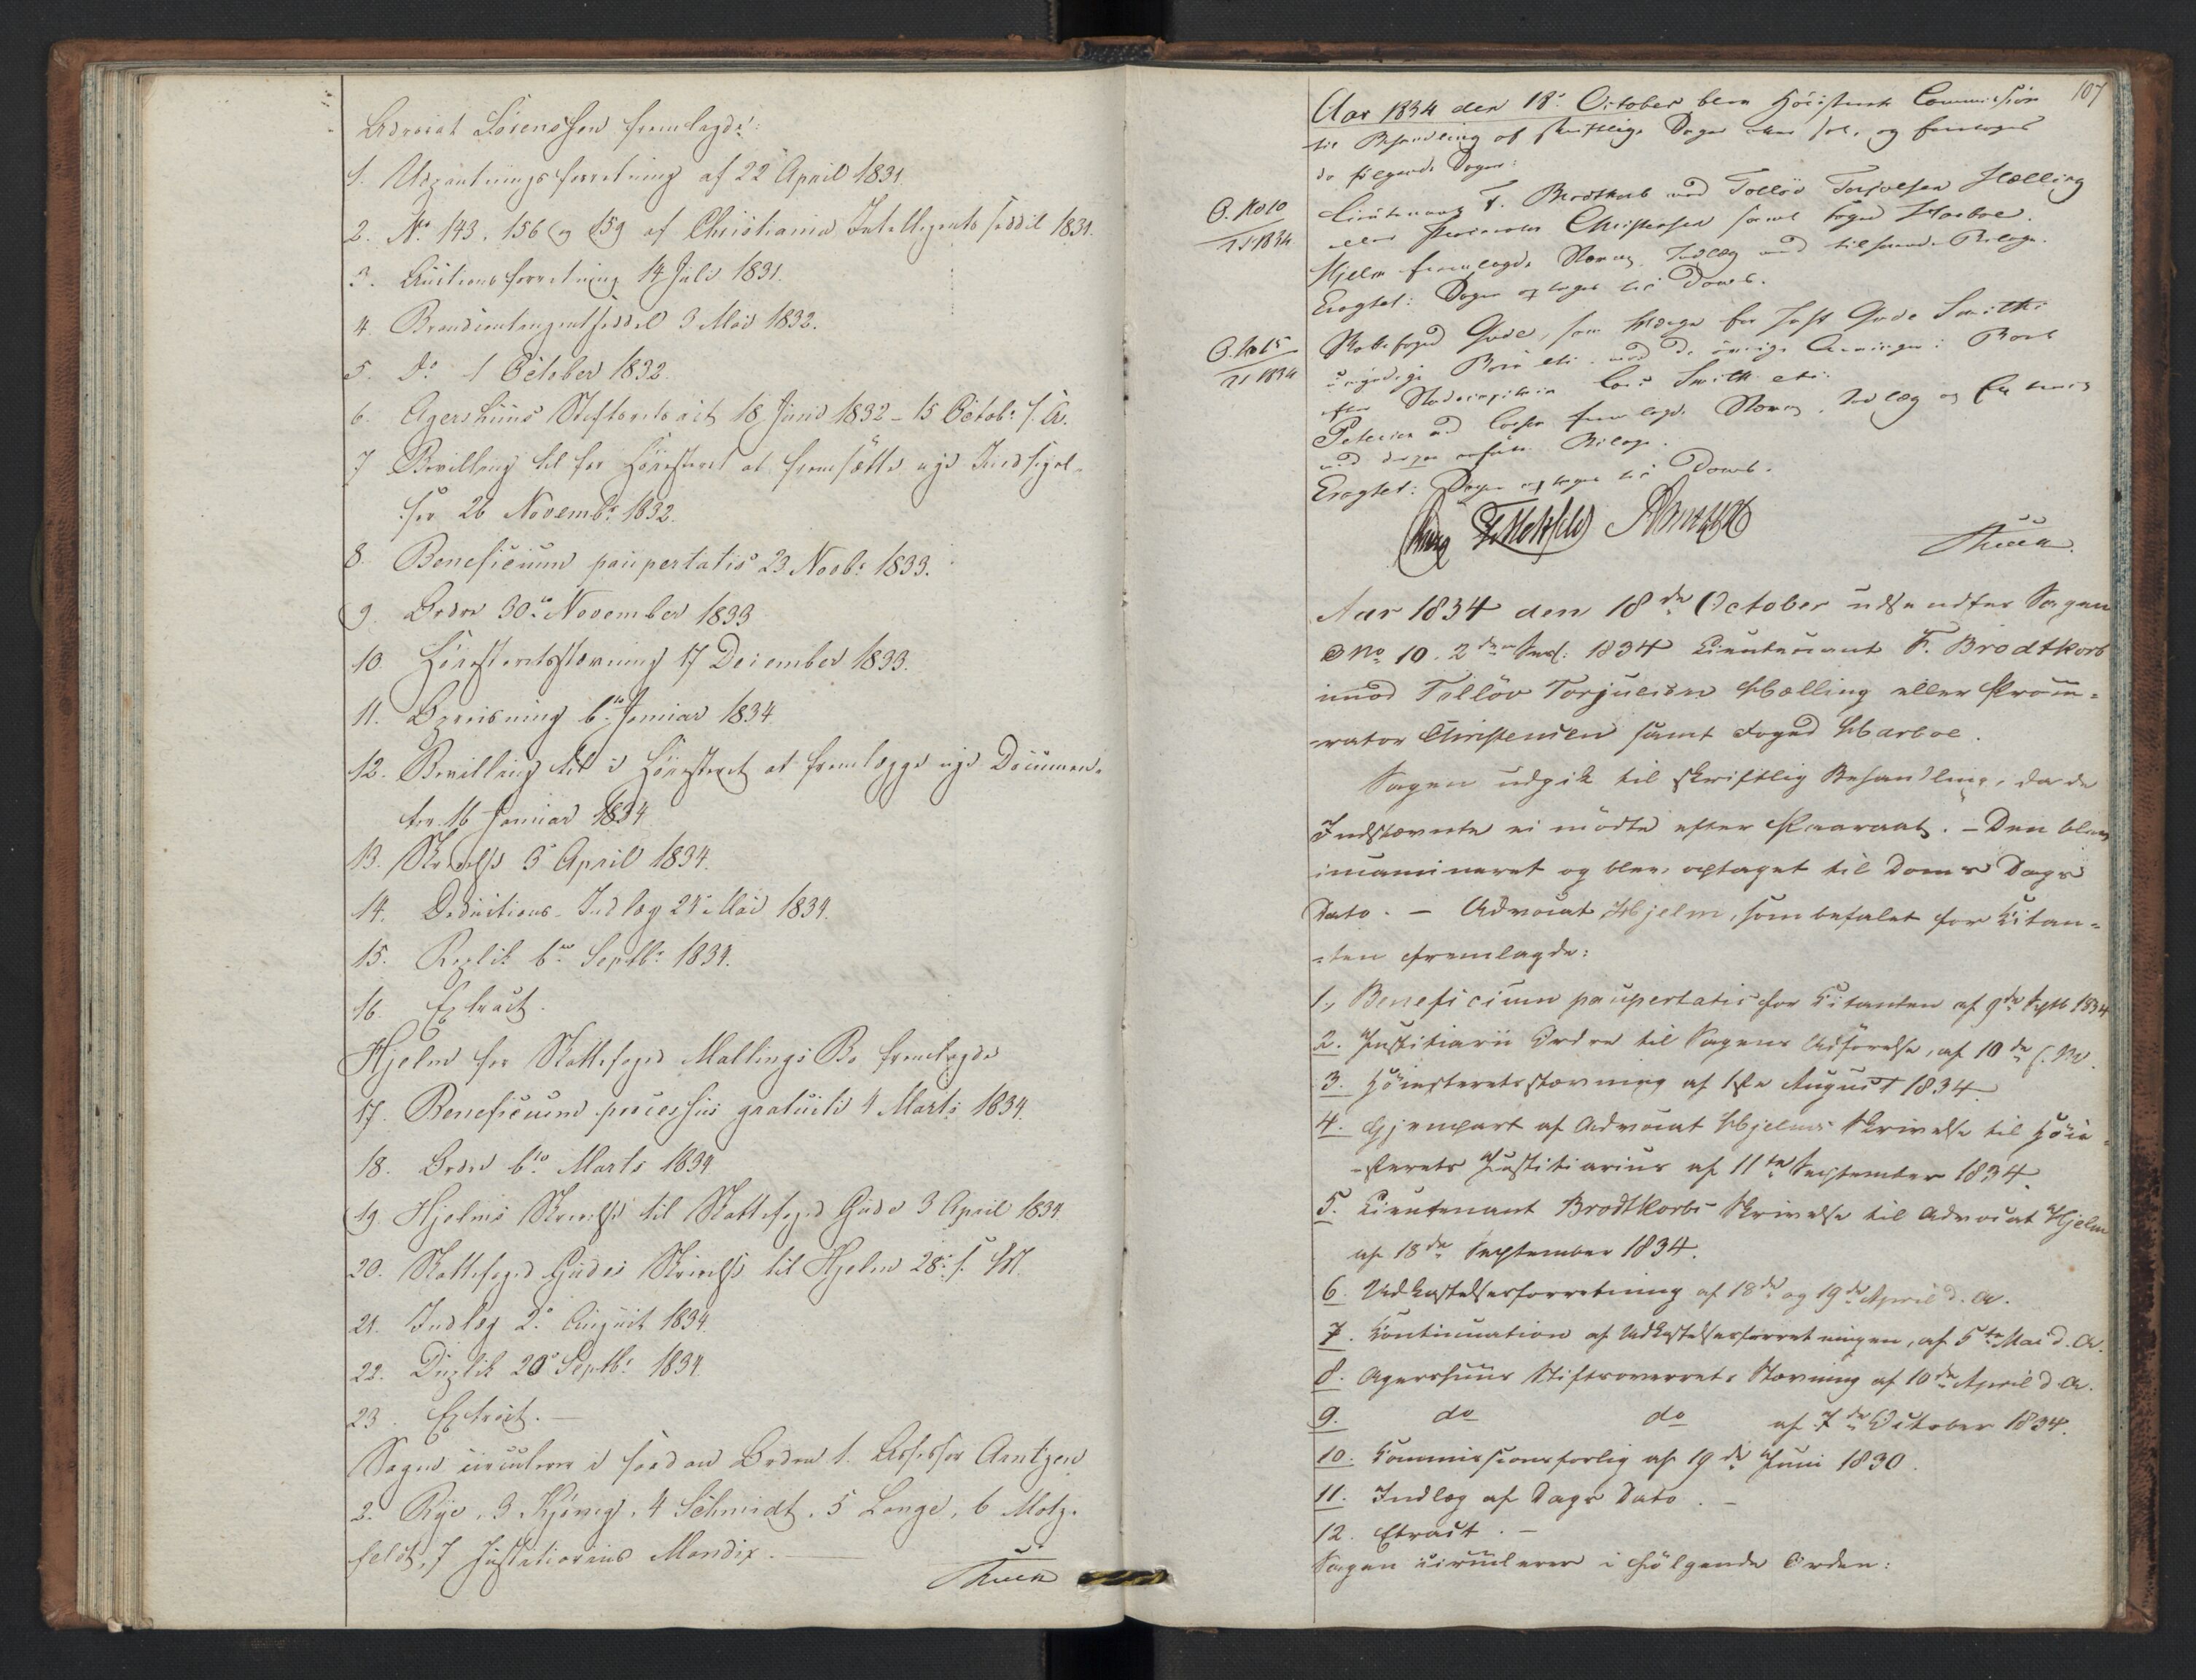 Advocat Sörenssen fremlagde:
1. Udpantningsforretning af 22 April 1831.
2. No 143, 156 og 159 af Christiania Intelligentssedler 1831.
3. Auctionsforretning 14 Juli 1831.
4. Brandcontingentseddel 3 Mai 1832.
5. Do 1 October 1832.
6. Agershuus Stiftsrets Act 18 Juni 1832 - 15 Octobr s. A.
7 Bevilling til for Höiesteret at fremsætte nye Indsigel-
ser 26 Novembr 1832.
8. Beneficium paupertatis 23 Novbr 1833.
9. Ordre 30te November 1833
10. Höiesteretsstævning 17 December 1833.
11. Opreisning 6te Januar 1834
12. Bevilling til i Höiesteret at fremlægge nye Documen-
ter 16 Januar 1834
13. Skrivelse 3 April 1834.
14. Deductions-Indlæg 24 Mai 1834.
15. Replik 6te Septbr 1834.
16. Extract.
Hjelm for Skattefoged Mallings Bo fremlagde
17. Beneficium processus gratuiti 4 Marts 1834.
18. Ordre 6te Marts 1834
19. Hjelms Skrivelse til Skattefoged Gude 3 April 1834.
20. Skattefoged Gudes Skrivelse til Hjelm 28 s. M.
21. Indlæg 2 August 1834.
22. Duplik 20 Septbr 1834.
23. Extract. —
Sagen circulerer i saadan Orden 1. Assessor Arntzen
2. Rye, 3 Hjönig, 4 Schmidt, 5 Lange, 6 Motz-
feldt, 7 Justitiarius Mandix.
107
Aar 1834 den 18 October blev Höiesterets Commission
til Behandling af skriftlige Sager sat, og foretoges
da følgende Sager:
O. No 10
1834
Lieutenant F. Brodtkorb mod Tollöv Torjulsen Hælling
eller Procurator Christensen samt Foged Harboe.
Hjelm fremlagde Stævn., Indlæg med tilhørende Bilage.
Eragtet: Sagen optaget til Doms.
O. No 15
1834
Skattefoged Gude, som Værge for Gude Smiths
umyndige Börn etc. mod de øvrige Arvinger i Boet
efter Stadscapitain Smith etc.
Petersen fremlagde Stævn., Indlæg og Extract
med Bilage.
Eragtet: Sagen optages til Doms.
Aar 1834 den 18de October udsendtes Sagen
No 10. 2den Sess: 1834 Lieutenant F. Brodtkorb
imod Tollöv Torjuersen Hælling eller Procu-
rator Christensen samt Foged Harboe.
Sagen udgik til skriftlig Behandling, da de
Indstævnte ei mödte efter Paaraab. - Den blev
incamineret og blev optaget til Doms Dags
Dato. — Advocat Hjelm, som befalet for Citan-
ten fremlagde:
1., Beneficium paupertatis for Citanten af 9de Septb 1834
2. Justitiarii Ordre til Sagens Udförelse, af 10de s. M.
3. Höiesteretsstævning af 1ste August 1834
4. Gjenpart af Advocat Hjelms Skrivelse til Höie-
sterets Justitiarius af 11te September 1834.
5. Lieutenant Brodtkorbs Skrivelse til Advocat Hjelm
af 18de September 1834.
6. Udkastelsesforretning af 18de og 19de April d. A.
7. Continuation af Udkastelsesforretningen, af 5te Mai d. A.
8. Agershuus Stiftsoverrets Stævning af 10de April d. A.
9. do do af 7de October 1834.
10. Commissionsforlig af 19de Juni 1830.
11. Indlæg af Dags Dato. —
12. Etract. —
Sagen circulerer i følgende Orden: